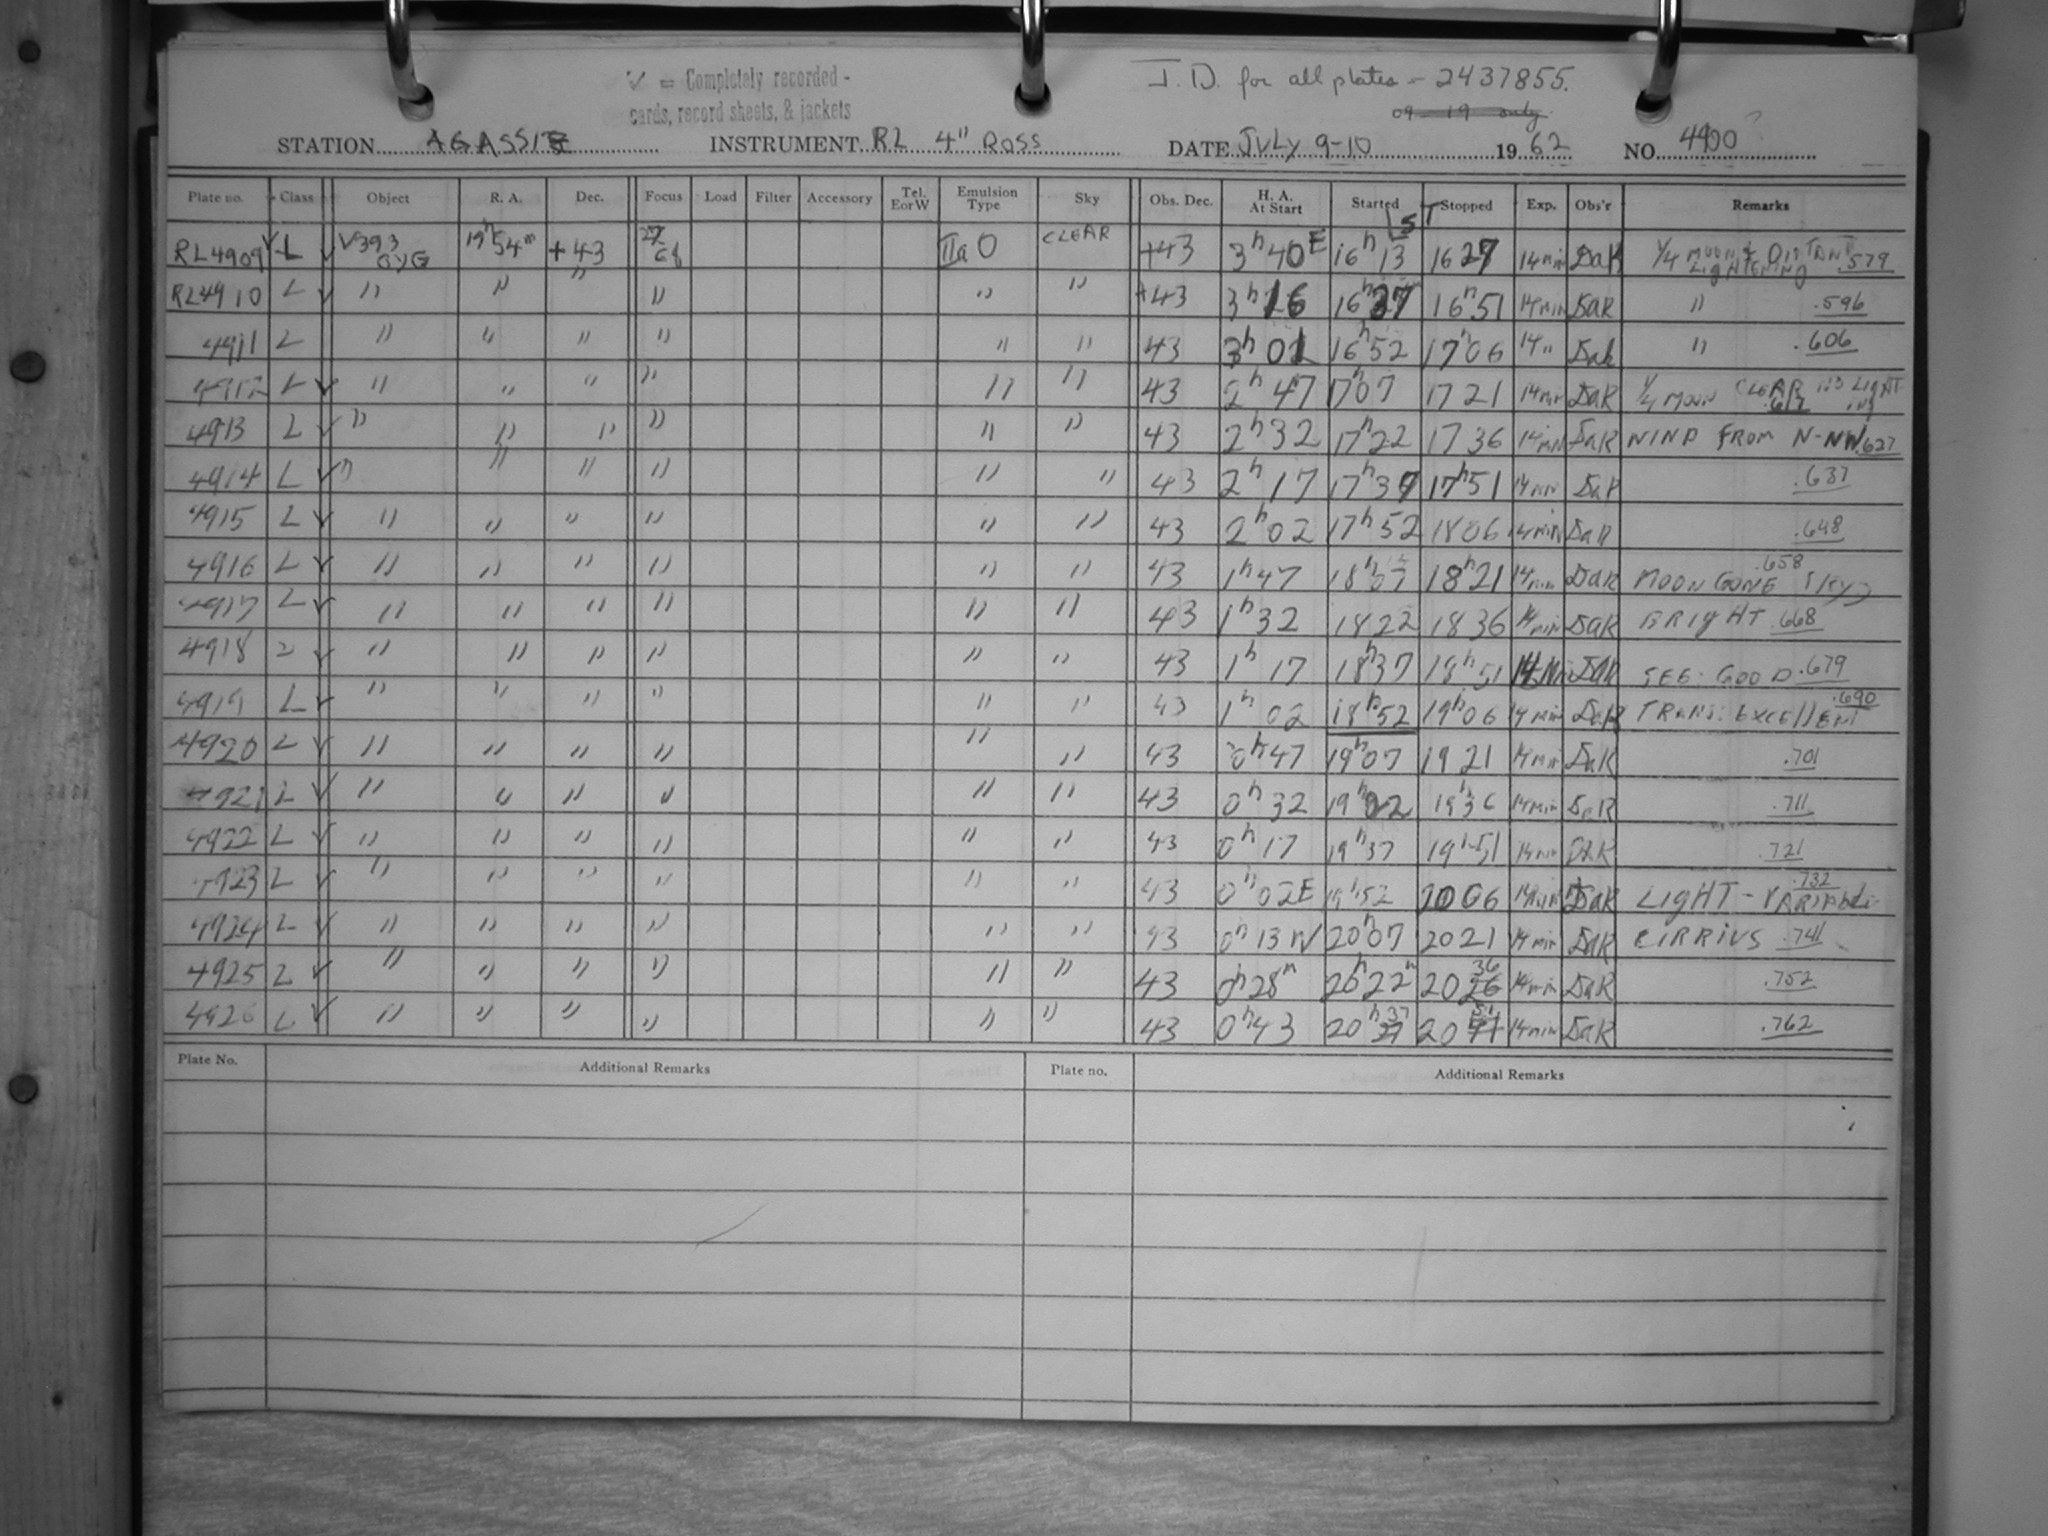 J.D. for all plates - 2437855.
09-19 only
✓ = Completely recorded -
cards, record sheets, & jackets
STATION AGASSIZ INSTRUMENT RL 4" ROSS DATE JULY 9-10 1962 NO. 4900?
Plate no. Class Object R. A. Dec. Focus Load Filter Accessory Tel. EorW Emulsion Type Sky Obs. Dec. H. A. At Start Started Stopped Exp. Obs'r Remarks
LST
RL4909 ✓ L ✓ V393 CYG 19h 54m +43 IIaO CLEAR +43 3h 40E 16h 13 1627 14min DaR 1/4 MOON & DISTANT LIGHTENING .579
RL4910 L ✓ " " " " " " +43 3h 16 16h 37 16h 51 14min DaR " .596
4911 L " " " " " " 43 3h 01 16h 52 17h 06 14" DaR " .606
4912 L ✓ " " " " " " 43 2h 47 17h 07 17 21 14min DaR 1/4 MOON CLEAR NO LIGHTING .617
4913 L ✓ " " " " " " 43 2h 32 17h 22 1736 14min DaR WIND FROM N-NW .627
4914 L ✓ " " " " " " 43 2h 17 17h 37 17h 51 14min DaR .637
4915 L ✓ " " " " " " 43 2h 02 17h 52 1806 14min DaR .648
4916 L ✓ " " " " " " 43 1h 47 18h 07 18h 21 14min DaR MOON GONE SKY .658
4917 L ✓ " " " " " " 43 1h 32 1822 1836 14min DaR BRIGHT .668
4918 L ✓ " " " " " " 43 1h 17 18h 37 18h 51 14min DaR SEE: GOOD .679
4919 L ✓ " " " " " " 43 1h 02 18h 52 19h 06 14min DaR TRANS: EXCELLENT .690
4920 L ✓ " " " " " " 43 0h 47 19h 07 19 21 14min DaR .701
4921 L ✓ " " " " " " 43 0h 32 19h 22 19h 36 14min DaR .711
4922 L ✓ " " " " " " 43 0h 17 19h 37 19h 51 14min DaR .721
4923 L ✓ " " " " " " 43 0h 02E 19h 52 2006 14min DaR LIGHT - VARIABLE .732
4924 L ✓ " " " " " " 43 0h 13W 20h 07 2021 14min DaR CIRRIUS .741
4925 L ✓ " " " " " " 43 0h 28m 20h 22m 20 26 36 14min DaR .752
4926 L ✓ " " " " " " 43 0h 43 20h 27 37 20 51 14min DaR .762
Plate No. Additional Remarks Plate no. Additional Remarks